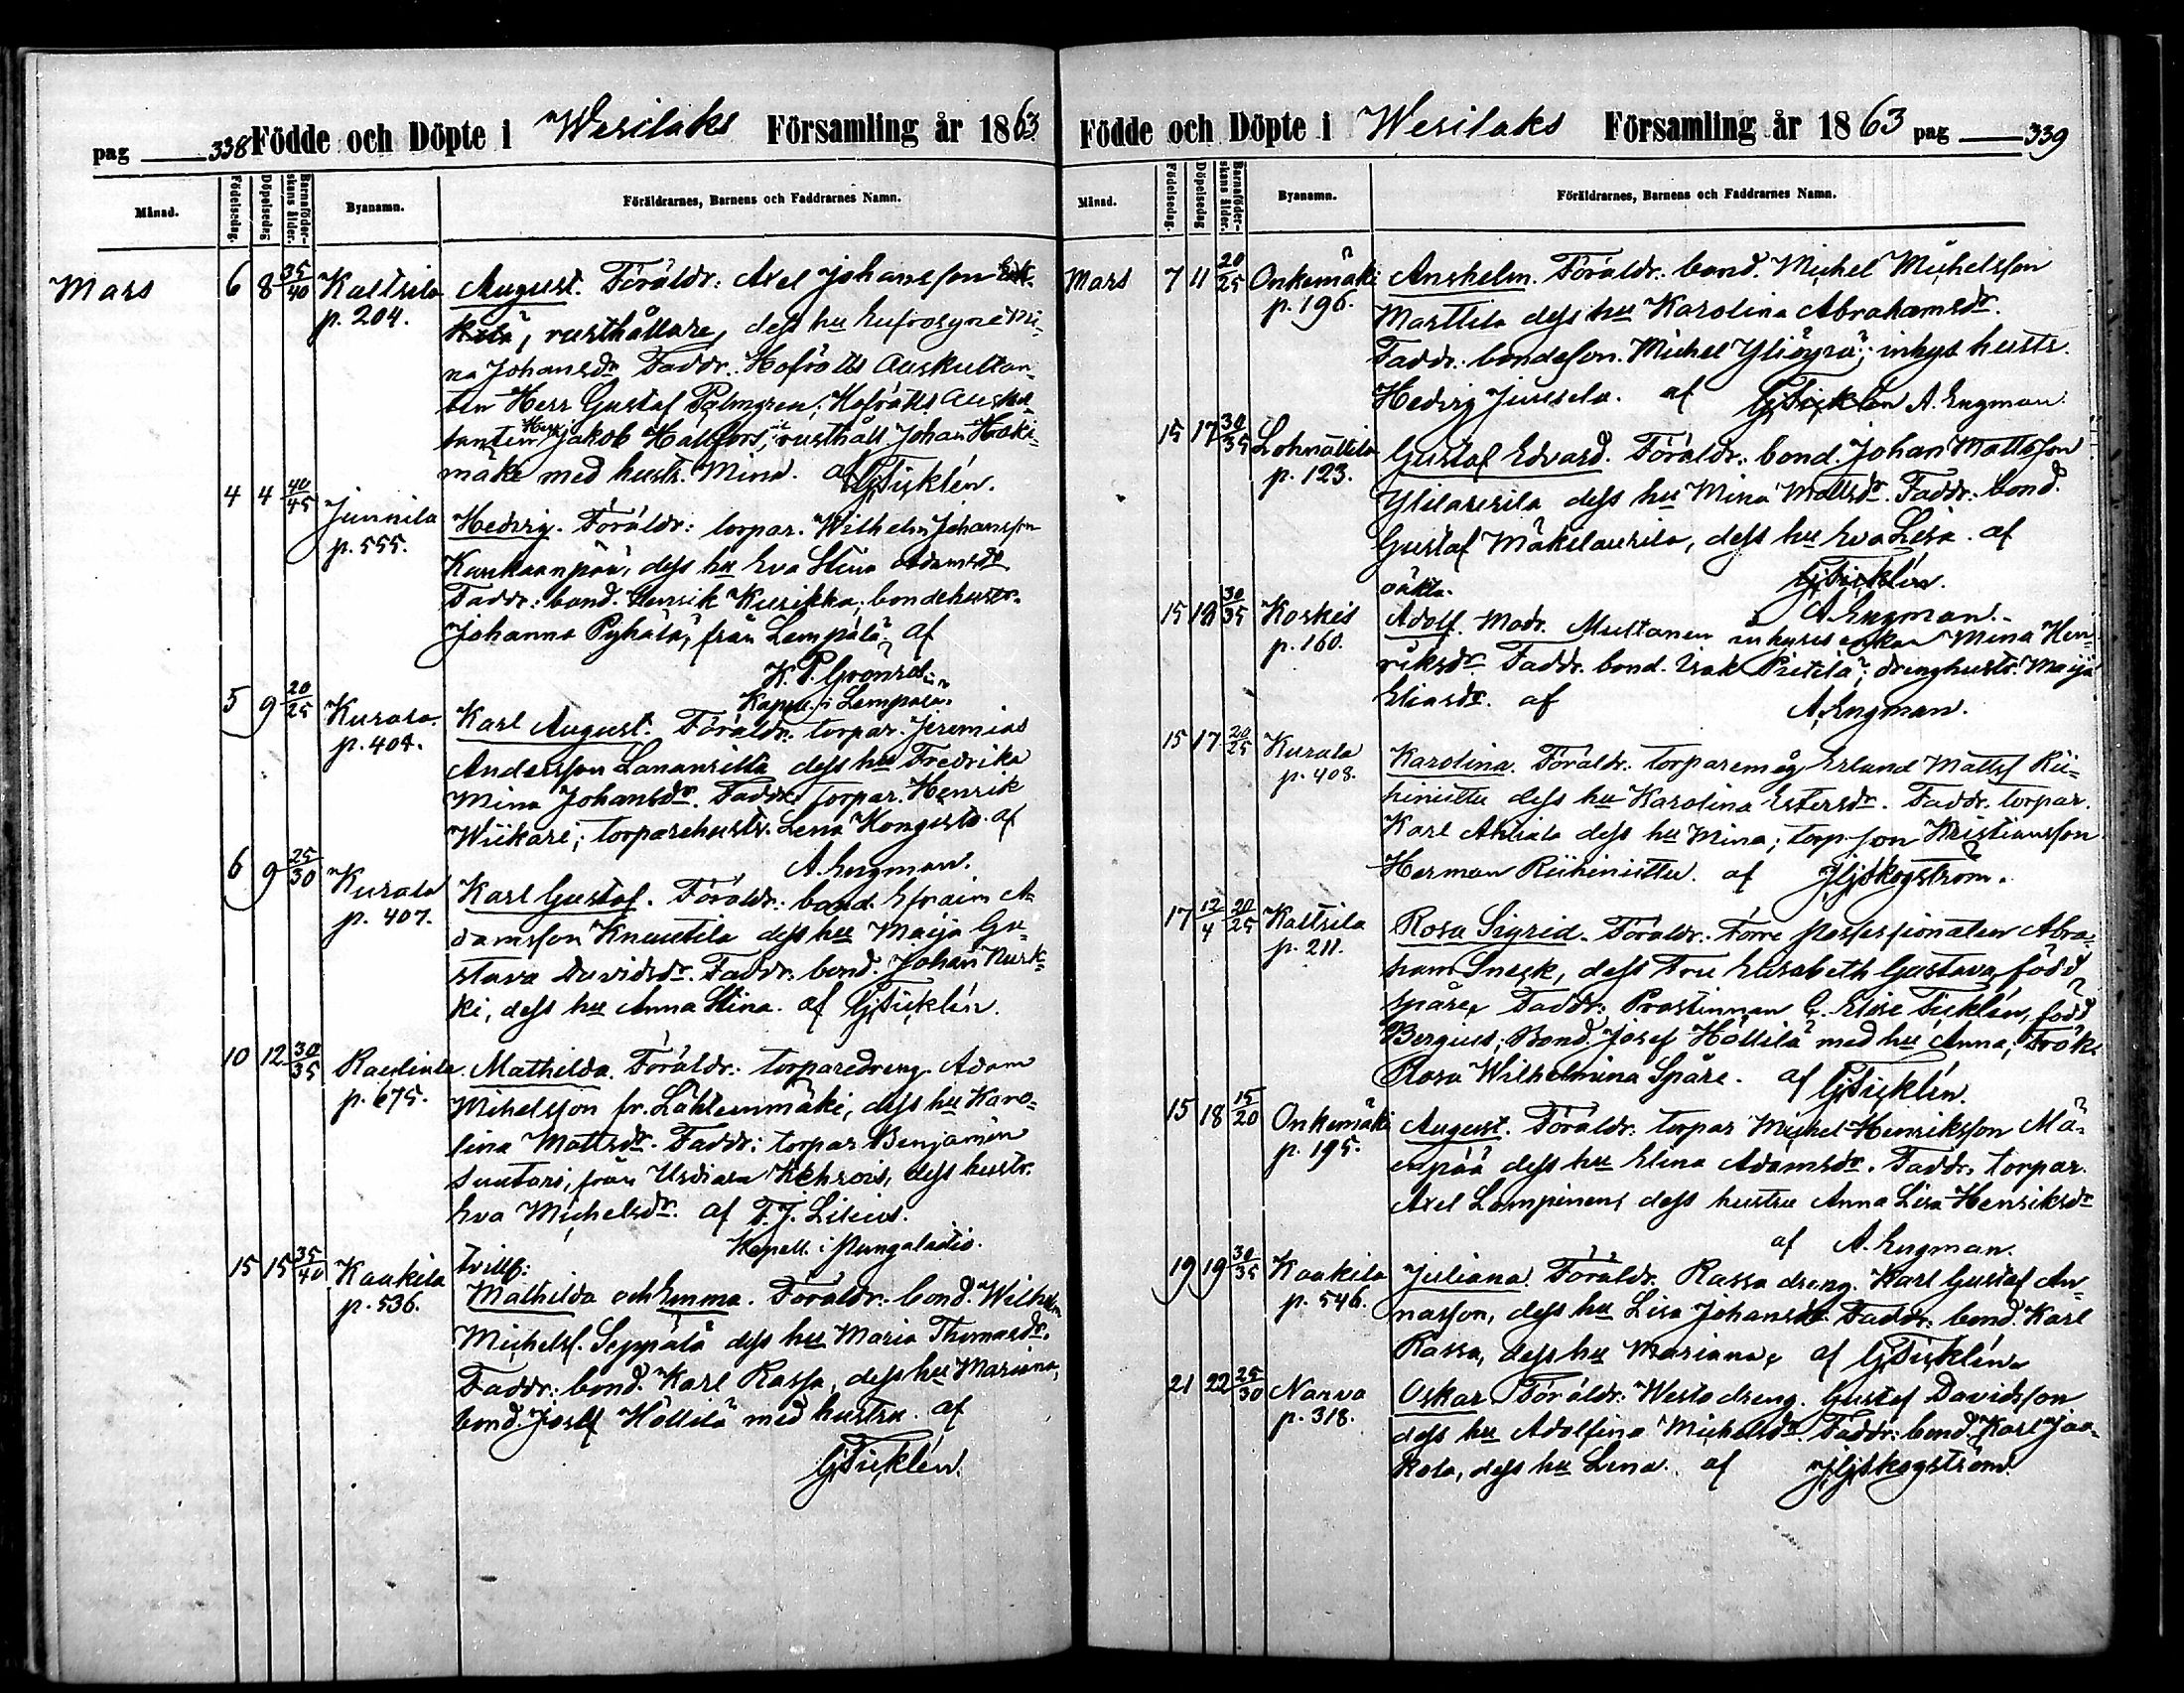 pag 338 Födde och Döpte i Wesilaks Församling år 1863
Månad. Födelsedag. Döpelsedag Barnaföderskans ålder. Byanamn. Föräldrarnes, Barnens och Faddrarnes Namn.
Mars 6 8 35/40 Kaltsila August. Föräldr: Axel Johansson
p. 204. rusthållare, dess hu Eufrosyne Mi-
na Johansdr. Faddr. Hofrätts Auskultan-
ten Herr Gustaf Palmgren; Hofrätts Auskul-
tanten Herr Jakob Hallfors; rusthåll Johan Haki-
mäki med hustr. Mina. af GFicklén.
4 4 40/45 Junnila Hedvig. Föräldr: torpar. Wilhelm Johansson
p. 555. Kaukaanpää, dess hu Eva Stina Adamsdr.
Faddr: bond. Henrik Kurikka; bondehustr.
Johanna Pyhälä, från Lempälä. af
K. P.
Kapell. i Lempälä.
5 9 20/25 Kurala Karl August. Föräldr. torpar. Jeremias
p. 404. Andersson Lananiitta dess hu Fredrika
Mina Johansdr. Faddr: torpar. Henrik
Wiikari; torparehustr. Lena Kongisto. af
A. Engman.
6 9 25/30 Kurala Karl Gustaf. Föräldr: bond. Efraim A-
p. 407. damsson Knuutila dess hu Maija Gu-
stava Davidsdr. Faddr: bond. Johan Kurk-
ki, dess hu Anna Stina. af GFicklén.
10 12 30/35 Rautiala Mathilda. Föräldr: torparedreng. Adam
p. 675. Mihelsson fr. Lähteenmäki, dess hu Karo-
lina Mattsdr. Faddr: torpar Benjamin
Suutari, från Urdiala Kehrois, dess hustr.
Eva Michelsdr. af F. J. Lilius.
Kapell. i Pungalaitio.
15 15 35/40 Kaakila tvill:
p. 536. Mathilda och Emma. Föräldr: bond. Wilhelm
Michelss. Seppälä dess hu Maria Thomasdr.
Faddr: bond. Karl Rassa, dess hu Mariana,
bond. Josef Höllilä med hustru. af
GFicklén.
Födde och Döpte i Wesilaks Församling år 1863 pag 339
Månad. Födelsedag. Döpelsedag Barnaföderskans ålder. Byanamn. Föräldrarnes, Barnens och Faddrarnes Namn.
Mars 7 11 20/25 Onkemäki Anshelm. Föräldr: bond. Michel Michelsson
p. 196. Marttila dess hu Karolina Abrahamsdr.
Faddr. bondeson. Michel Yliöyrä; inhys hustr.
Hedvig Juusela. af GFicklén A. Engman.
15 17 30/35 Lohnattila Gustaf Edvard. Föräldr: bond. Johan Mattsson
p. 123. Ylilaurila dess hu Mina Mattsdr. Faddr: bond.
Gustaf Mäkelaurila, dess hu Eva Lisa. af
GFicklén.
oäkta. A. Engman.
15 19 30/35 Koskis Adolf. Modr. Multanen inhyses enkan Mina Hen-
p. 160. riksdr. Faddr. bond. Isak Pietilä; drenghustr. Maija
Eliasdr. af A. Engman.
15 17 20/25 Kurala Karolina. Föräldr: torparemåg Erland Mattss. Rii-
p. 408. hiniittu dess hu Karolina Estersdr. Faddr. torpar.
Karl Ahliala dess hu Mina; torp. son Kristiansson
Herman Riihiniittu. af JGSkogström.
17 12/4 20/25 Kaltsila Rosa Sigrid. Föräldr. Förre Possessionaten Abra-
p. 211. ham Sneck, dess Fru Elisabeth Gustava, född
Spåre. Faddr: Prostinnan C. Elise Ficklén, född
Bergius; Bond. Josef Höllilä med hu Anna; Frök.
Rosa Wilhelmina Spåre. af GFicklén.
15 18 15/20 Onkemäki August. Föräldr: torpar Michel Henriksson Mä-
p. 195. enpää dess hu Elena Adamsdr. Faddr: torpar.
Axel Lampinen, dess hustru Anna Lisa Henriksdr
af A. Engman.
19 19 30/35 Kaakila Juliana. Föräldr. Rassa dreng. Karl Gustaf An-
p. 546. nasson, dess hu Lisa Johansdr. Faddr: bond. Karl
Rassa, dess hu Mariana, af GFicklén.
21 22 25/30 Narva Oskar. Föräldr: Westo dreng. Gustaf Davidsson
p. 318. dess hu Adolfina Michelsdr. Faddr: bond. Karl Jaa-
kola, dess hu Lena. af JGSkogström.